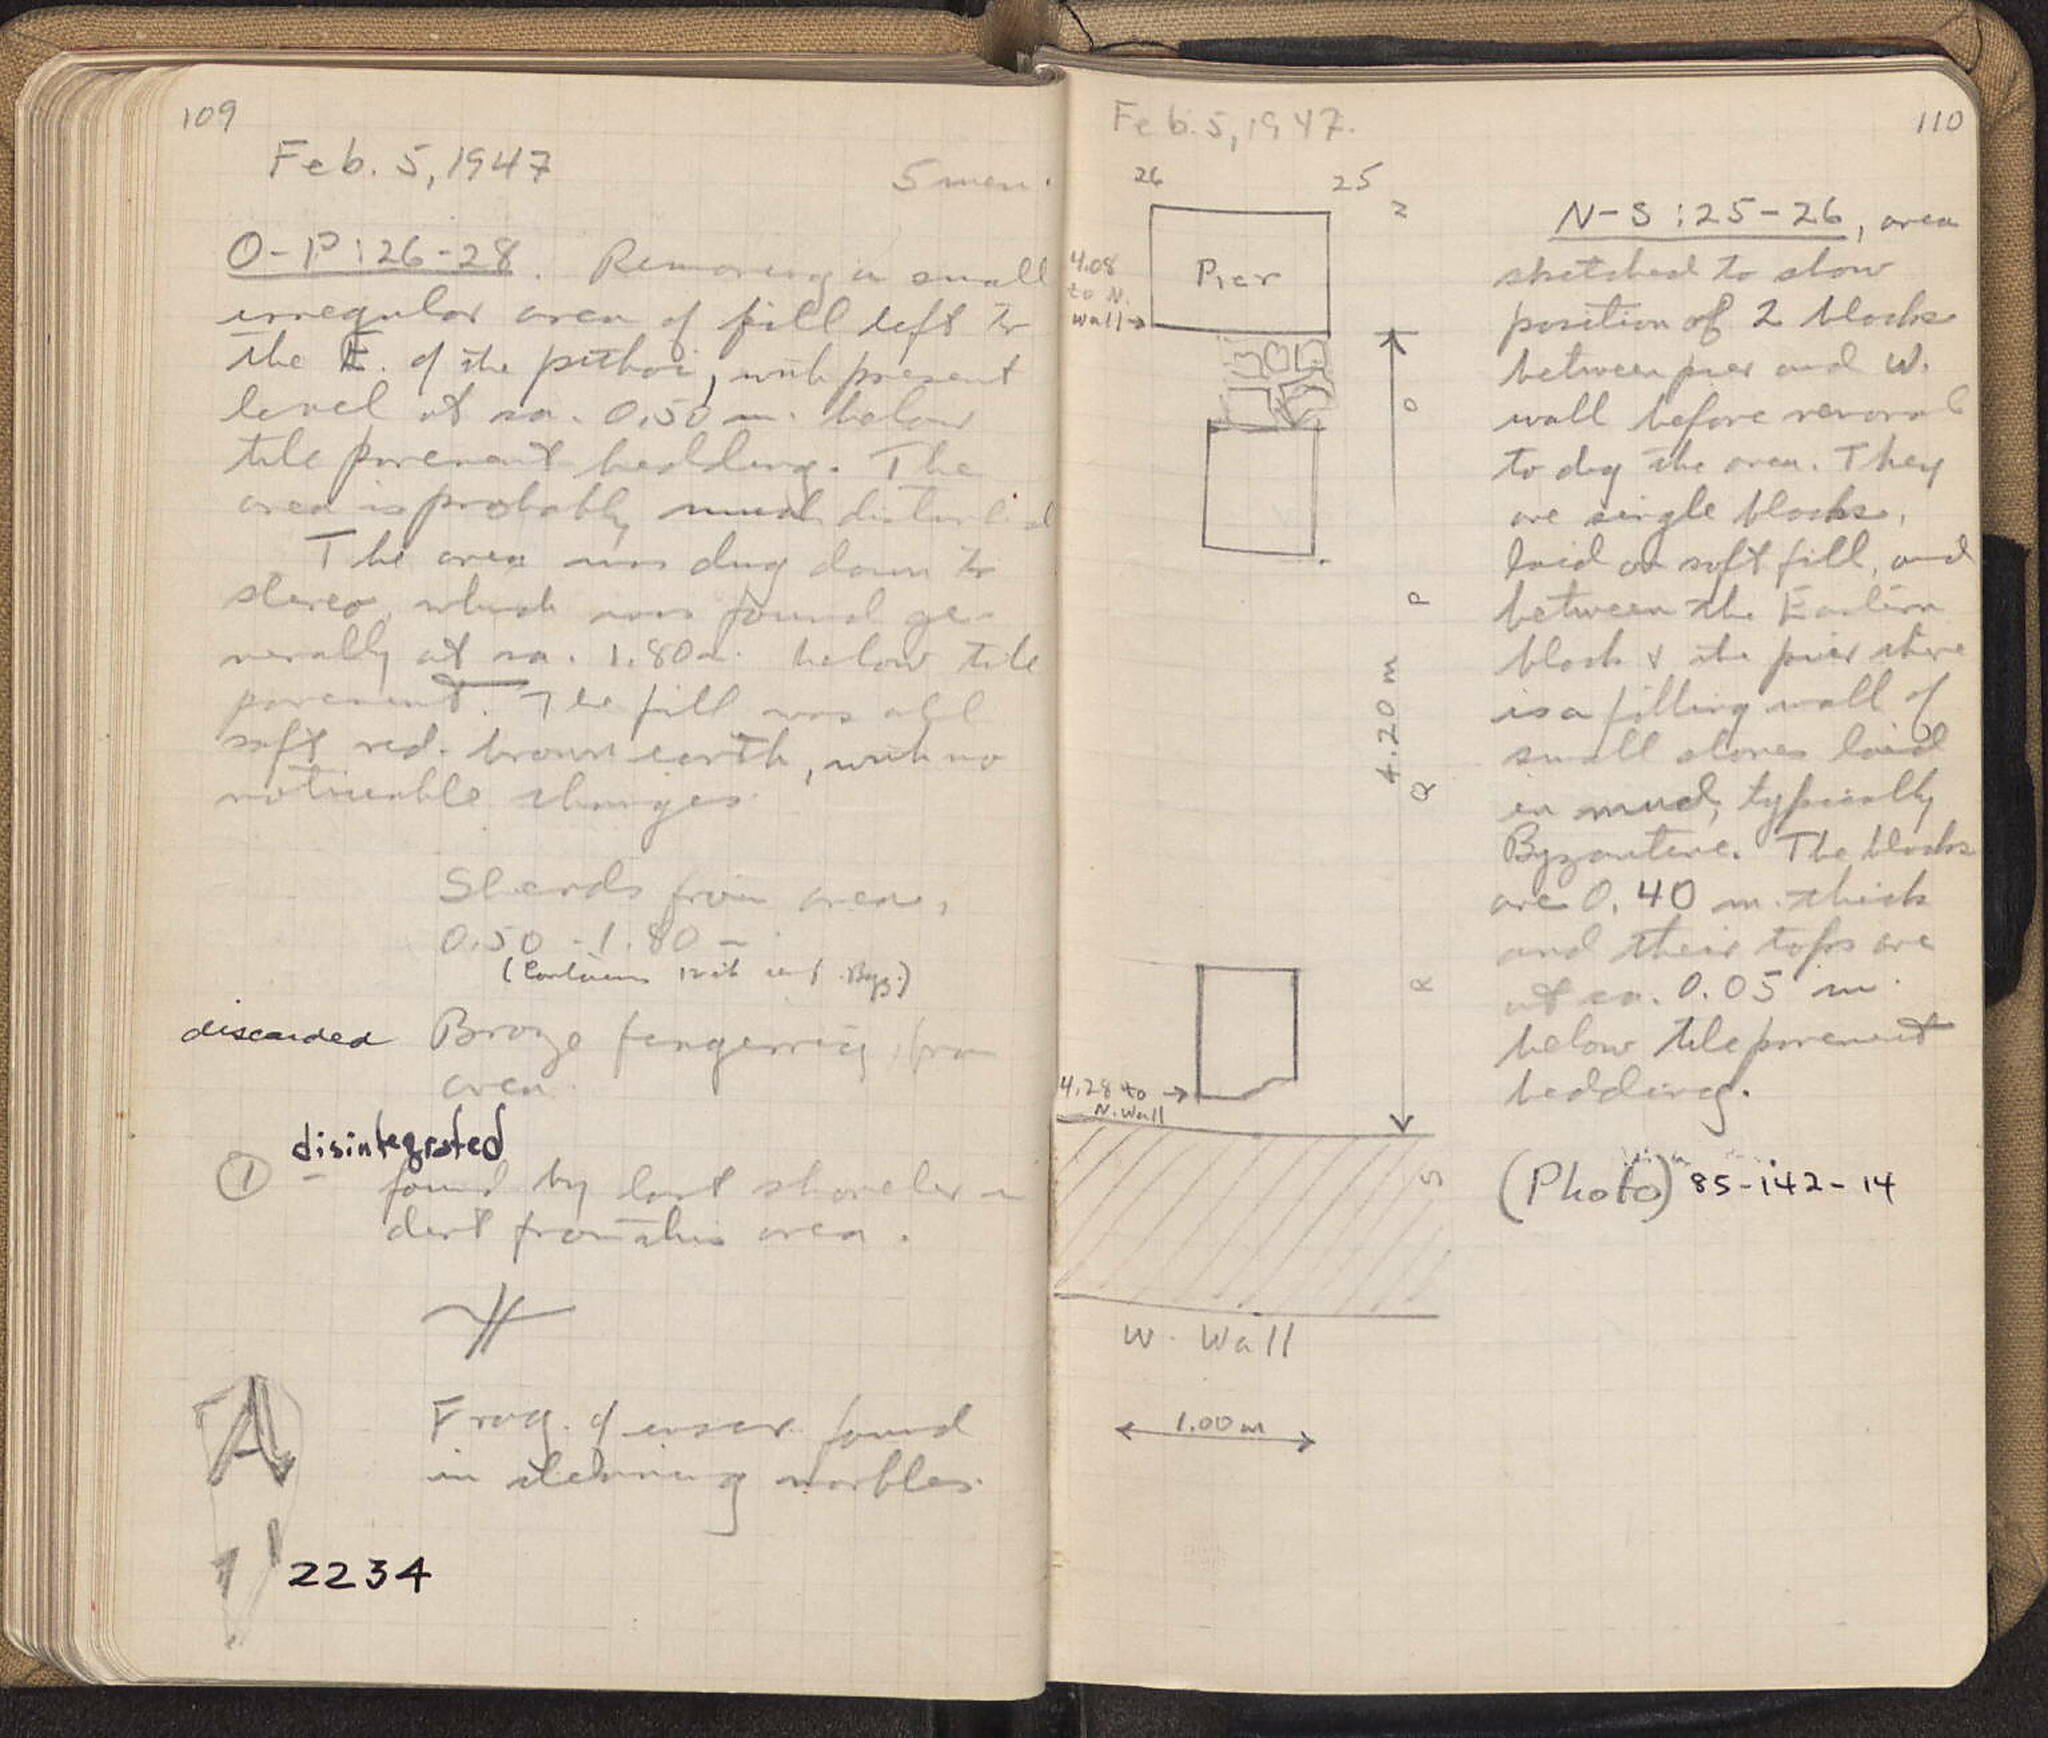 109
Feb. 5, 1947
5 men.
O-P:26-28. Removing a small
irregular area of fill left to
the E. of the pithoi, with present
level at ca. 0.50 m. below
tile pavement bedding. The
area is probably much disturbed
The area was dug down to
stereo, which was found ge-
nerally at ca. 1.80 m. below tile
pavement. The fill was all
soft red-brown earth, with no
noticeable changes.
Sherds from area,
0.50 - 1.80 m
(Contains Byz.)
discarded Bronze fingerring, from
area.
disintegrated
① - found by last shoveler in
dirt from this area.
Frag. of inscr. found
in cleaning marbles.
A
2234
Feb. 5, 1947.
110
26 25
N
Pier
4.08
to N.
Wall→
O
P
4.20 m
Q
R
4.28 to →
N. Wall
S
W. Wall
1.00 m
N-S:25-26, area
sketched to show
position of 2 blocks
between pier and W.
wall before removal
to dig the area. They
are single blocks,
laid on soft fill, and
between the Eastern
block & the pier there
is a filling wall of
small stones laid
in mud, typically
Byzantine. The blocks
are 0.40 m. thick
and their tops are
at ca. 0.05 m.
below tile pavement
bedding.
(Photo) 85-142-14